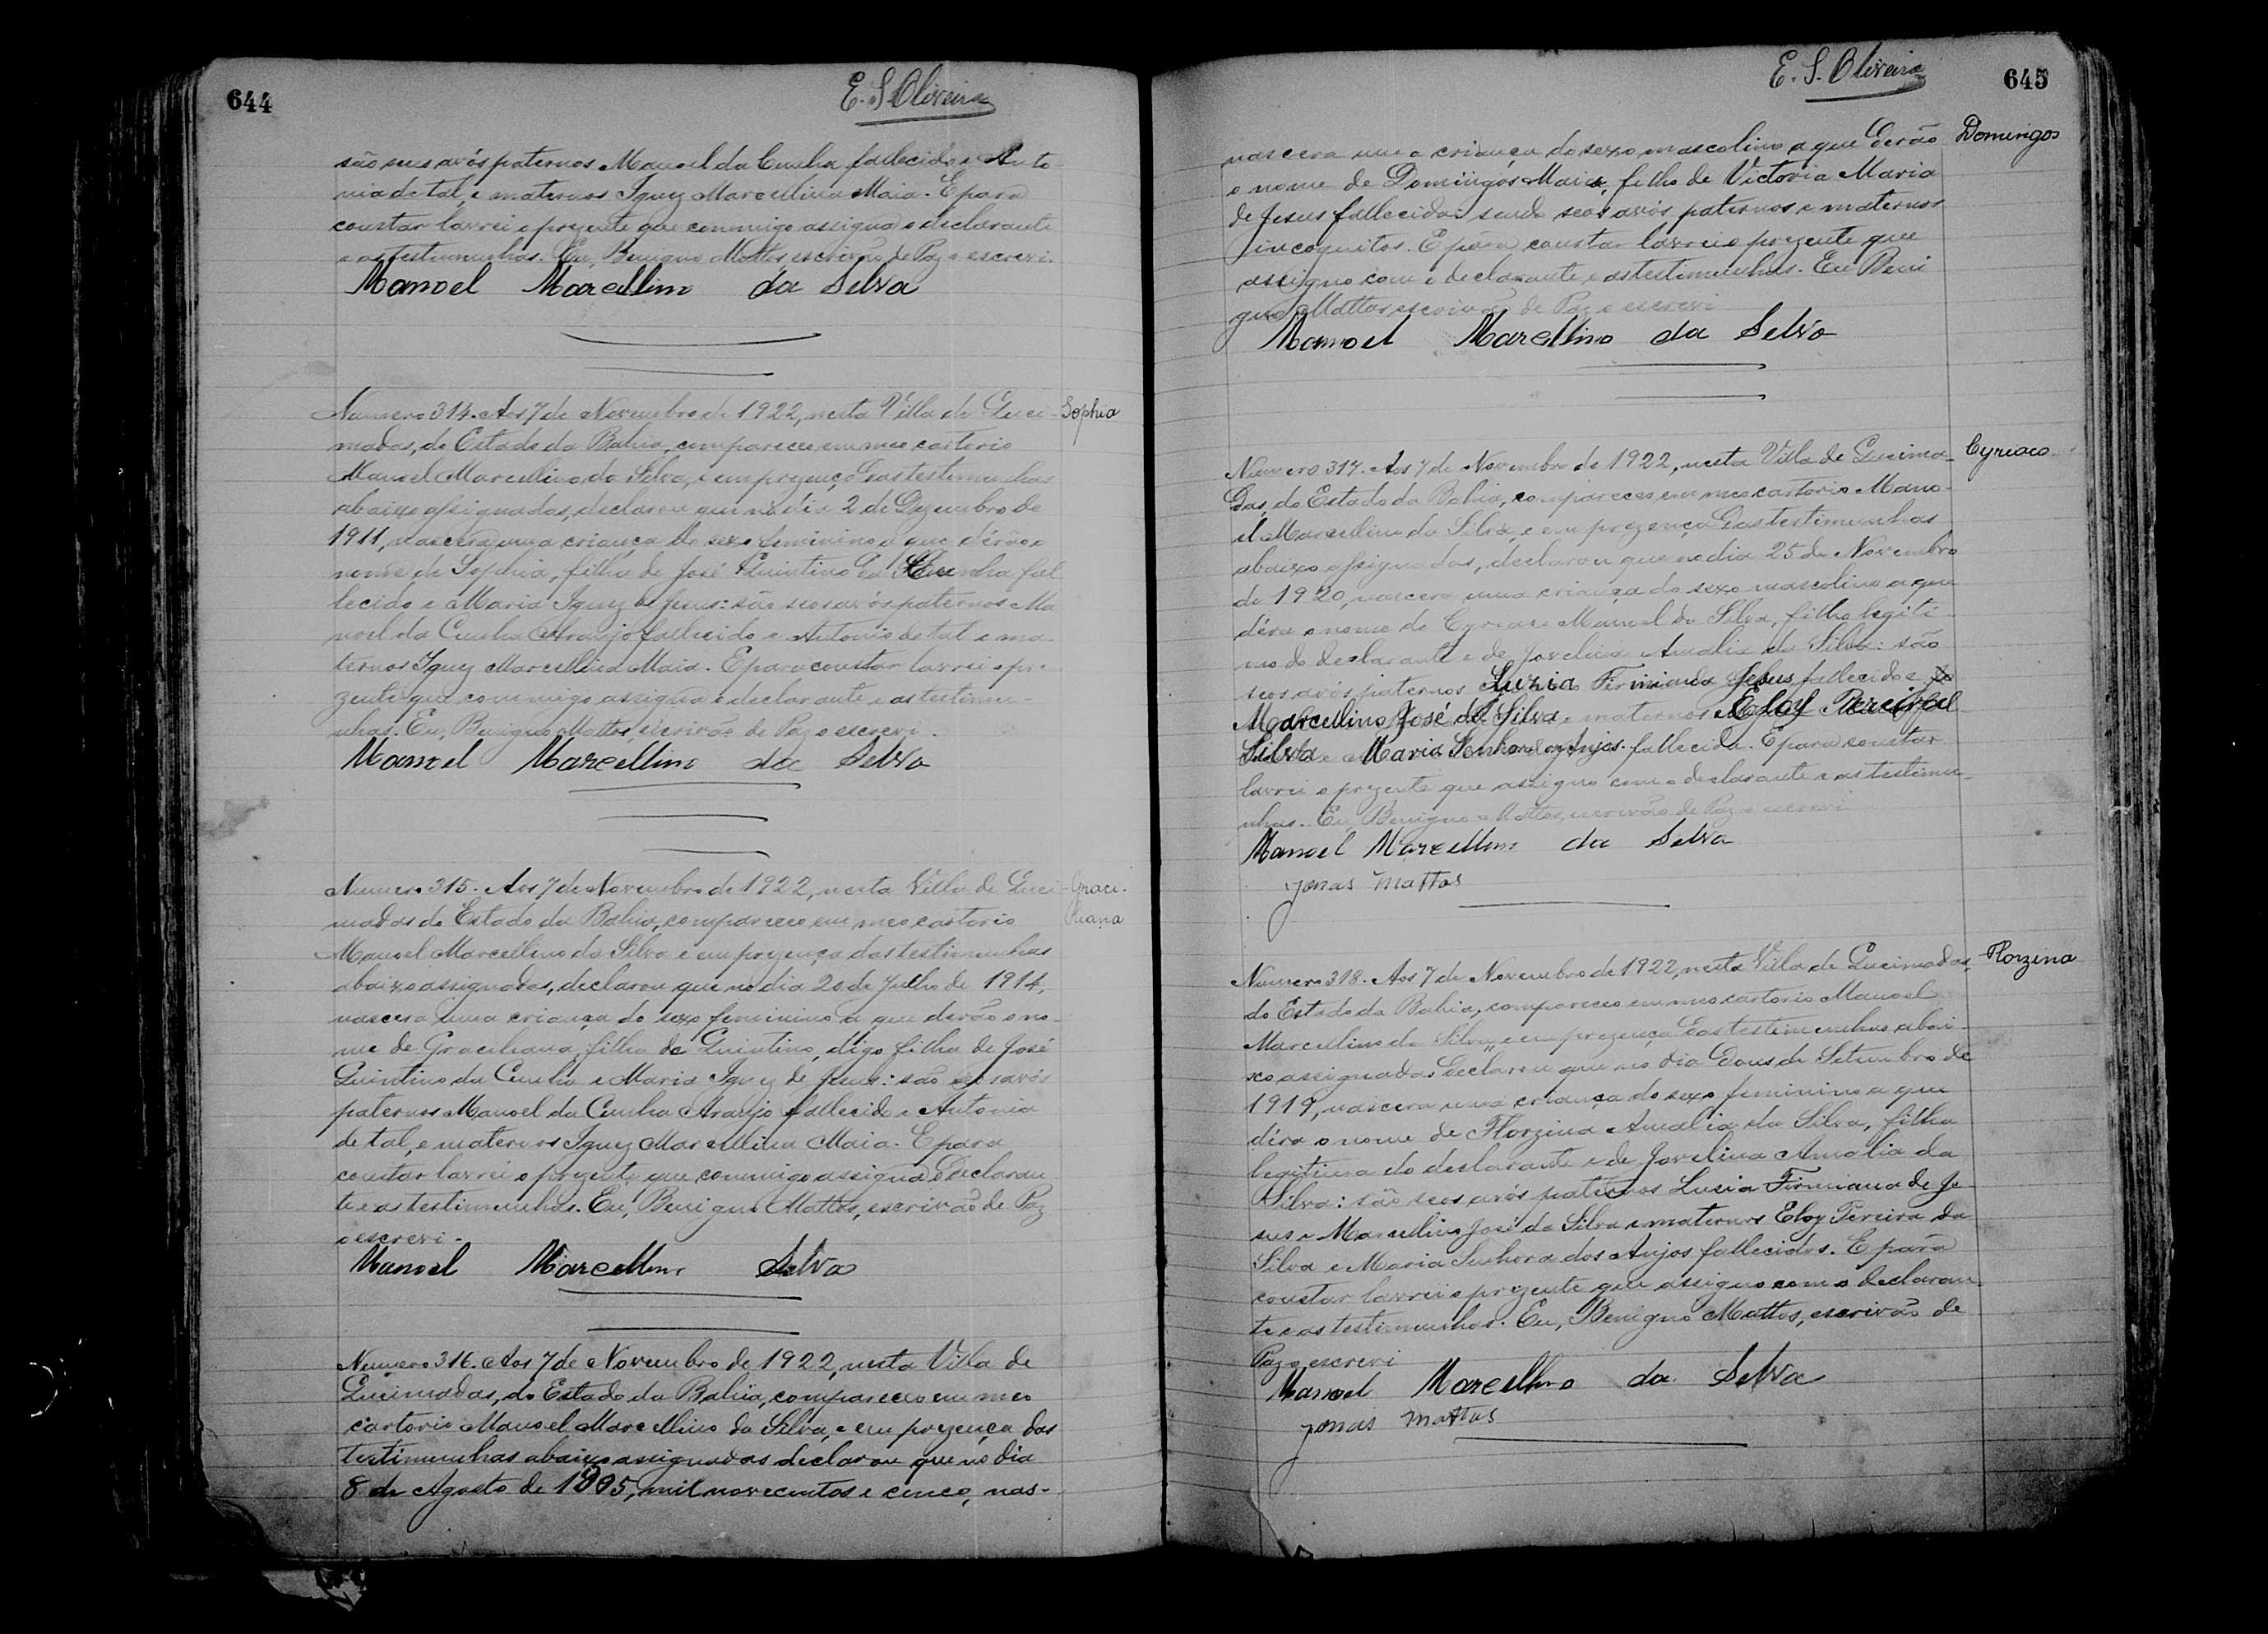 644
E. S. Oliveira
são seus avós paternos Manoel da Cunha fallecido e Anto-
nia de tal, e maternos Ignez Marcellina Maia. E para
constar lavrei o prezente que commigo assigna o declarante
e as testimunhas. Eu, Benigno Mattos, escrivão de Paz o escrevi.
Manoel Marcellino da Silva
Numero 314. Aos 7 de Novembro de 1922, nesta Villa de Quei-
Sophia
madas, do Estado da Bahia, compareceo em meo cartorio
Manoel Marcellino da Silva, e em prezença das testimunhas
abaixo assignadas, declarou que no dia 2 de Dezembro de
1911, nascera uma criança do sexo feminino a que dérão o
nome de Sophia, filha de José Quintino da Cunha fal
lecido e Maria Ignez de Jesus: são seos avós paternos Ma
noel da Cunha Araujo fallecido e Antonia de tal e ma-
ternos Ignez Marcellina Maia. E para constar lavrei o pre-
zente que commigo assigna o declarante e as testimu-
nhas. Eu, Benigno Mattos, escrivão de Paz o escrevi.
Manoel Marcellino da Silva
Numero 315. Aos 7 de Novembro de 1922, nesta Villa de Quei-
Graci-
madas do Estado da Bahia, compareceo em meo cartorio
liana
Manoel Marcellino da Silva e em prezença das testimunhas
abaixo assignadas, declarou que no dia 20 de Julho de 1914,
nascera uma criança do sexo feminino a que derão o no-
me de Graciliana, filha de Quintino, digo filha de José
Quintino da Cunha e Maria Ignez de Jesus: são seos avós
paternos Manoel da Cunha Araujo fallecido e Antonia
de tal, e maternos Ignez Marcellina Maia. E para
constar lavrei o prezente que commigo assigna o declaran
te e as testimunhas. Eu, Benigno Mattos, escrivão de Paz
o escrevi.
Manoel Marcellino Silva
Numero 316. Aos 7 de Novembro de 1922, nesta Villa de
Queimadas, do Estado da Bahia, compareceo em meo
cartorio Manoel Marcellino da Silva, e em prezença das
testimunhas abaixo assignadas declarou que no dia
8 de Agosto de 1905, mil novecentos e cinco, nas-
E. S. Oliveira
645
nascera uma criança do sexo mascolino a que derão
Domingos
o nome de Domingos Maia, filho de Victoria Maria
de Jesus fallecida: sendo seos avós paternos e maternos
incognitos. E para constar lavrei o prezente que
assigno com o declarante e as testimunhas. Eu Beni
gno Mattos, escrivão de Paz o escrevi
Manoel Marcellino da Silva
Numero 317. Aos 7 de Novembro de 1922, nesta Villa de Queima-
Cyriaco
das, do Estado da Bahia, compareceo em meo cartorio Mano-
el Marcellino da Silva, e em prezença das testimunhas
abaixo assignadas, declarou que no dia 25 de Novembro
de 1920, nascera uma criança do sexo mascolino a que
déra o nome de Cyriaco Manoel da Silva, filho legiti-
mo do declarante e de Jovelina Amalia da Silva: são
seos avós paternos Luzia Firmiana Jesus fallecida e
Marcellino José da Silva e maternos Eloy Pereira da
Silva e Maria Senhora dos Anjos fallecida. E para constar
lavrei o prezente que assigno com o declarante e as testimu-
nhas. Eu Benigno Mattos, escrivão de Paz o escrevi
Manoel Marcellino da Silva
Jonas Mattos
Numero 318. Aos 7 de Novembro de 1922, nesta Villa de Queimadas,
Florzina
do Estado da Bahia, compareceo em meo cartorio Manoel
Marcellino da Silva, e em prezença das testimunhas abai-
xo assignadas declarou que no dia dous de Setembro de
1919, nascera uma criança do sexo feminino a que
déra o nome de Florzina Amalia da Silva, filha
legitima do declarante e de Jovelina Amalia da
Silva: são seos avós paternos Lusia Firmiana de Je
sus e Marcellino José da Silva e maternos Eloy Pereira da
Silva e Maria Senhora dos Anjos fallecidos. E para
constar lavrei o prezente que assigno com o declaran-
te e as testimunhas. Eu, Benigno Mattos, escrivão de
Paz o escrevi
Manoel Marcellino da Silva
Jonas Mattos